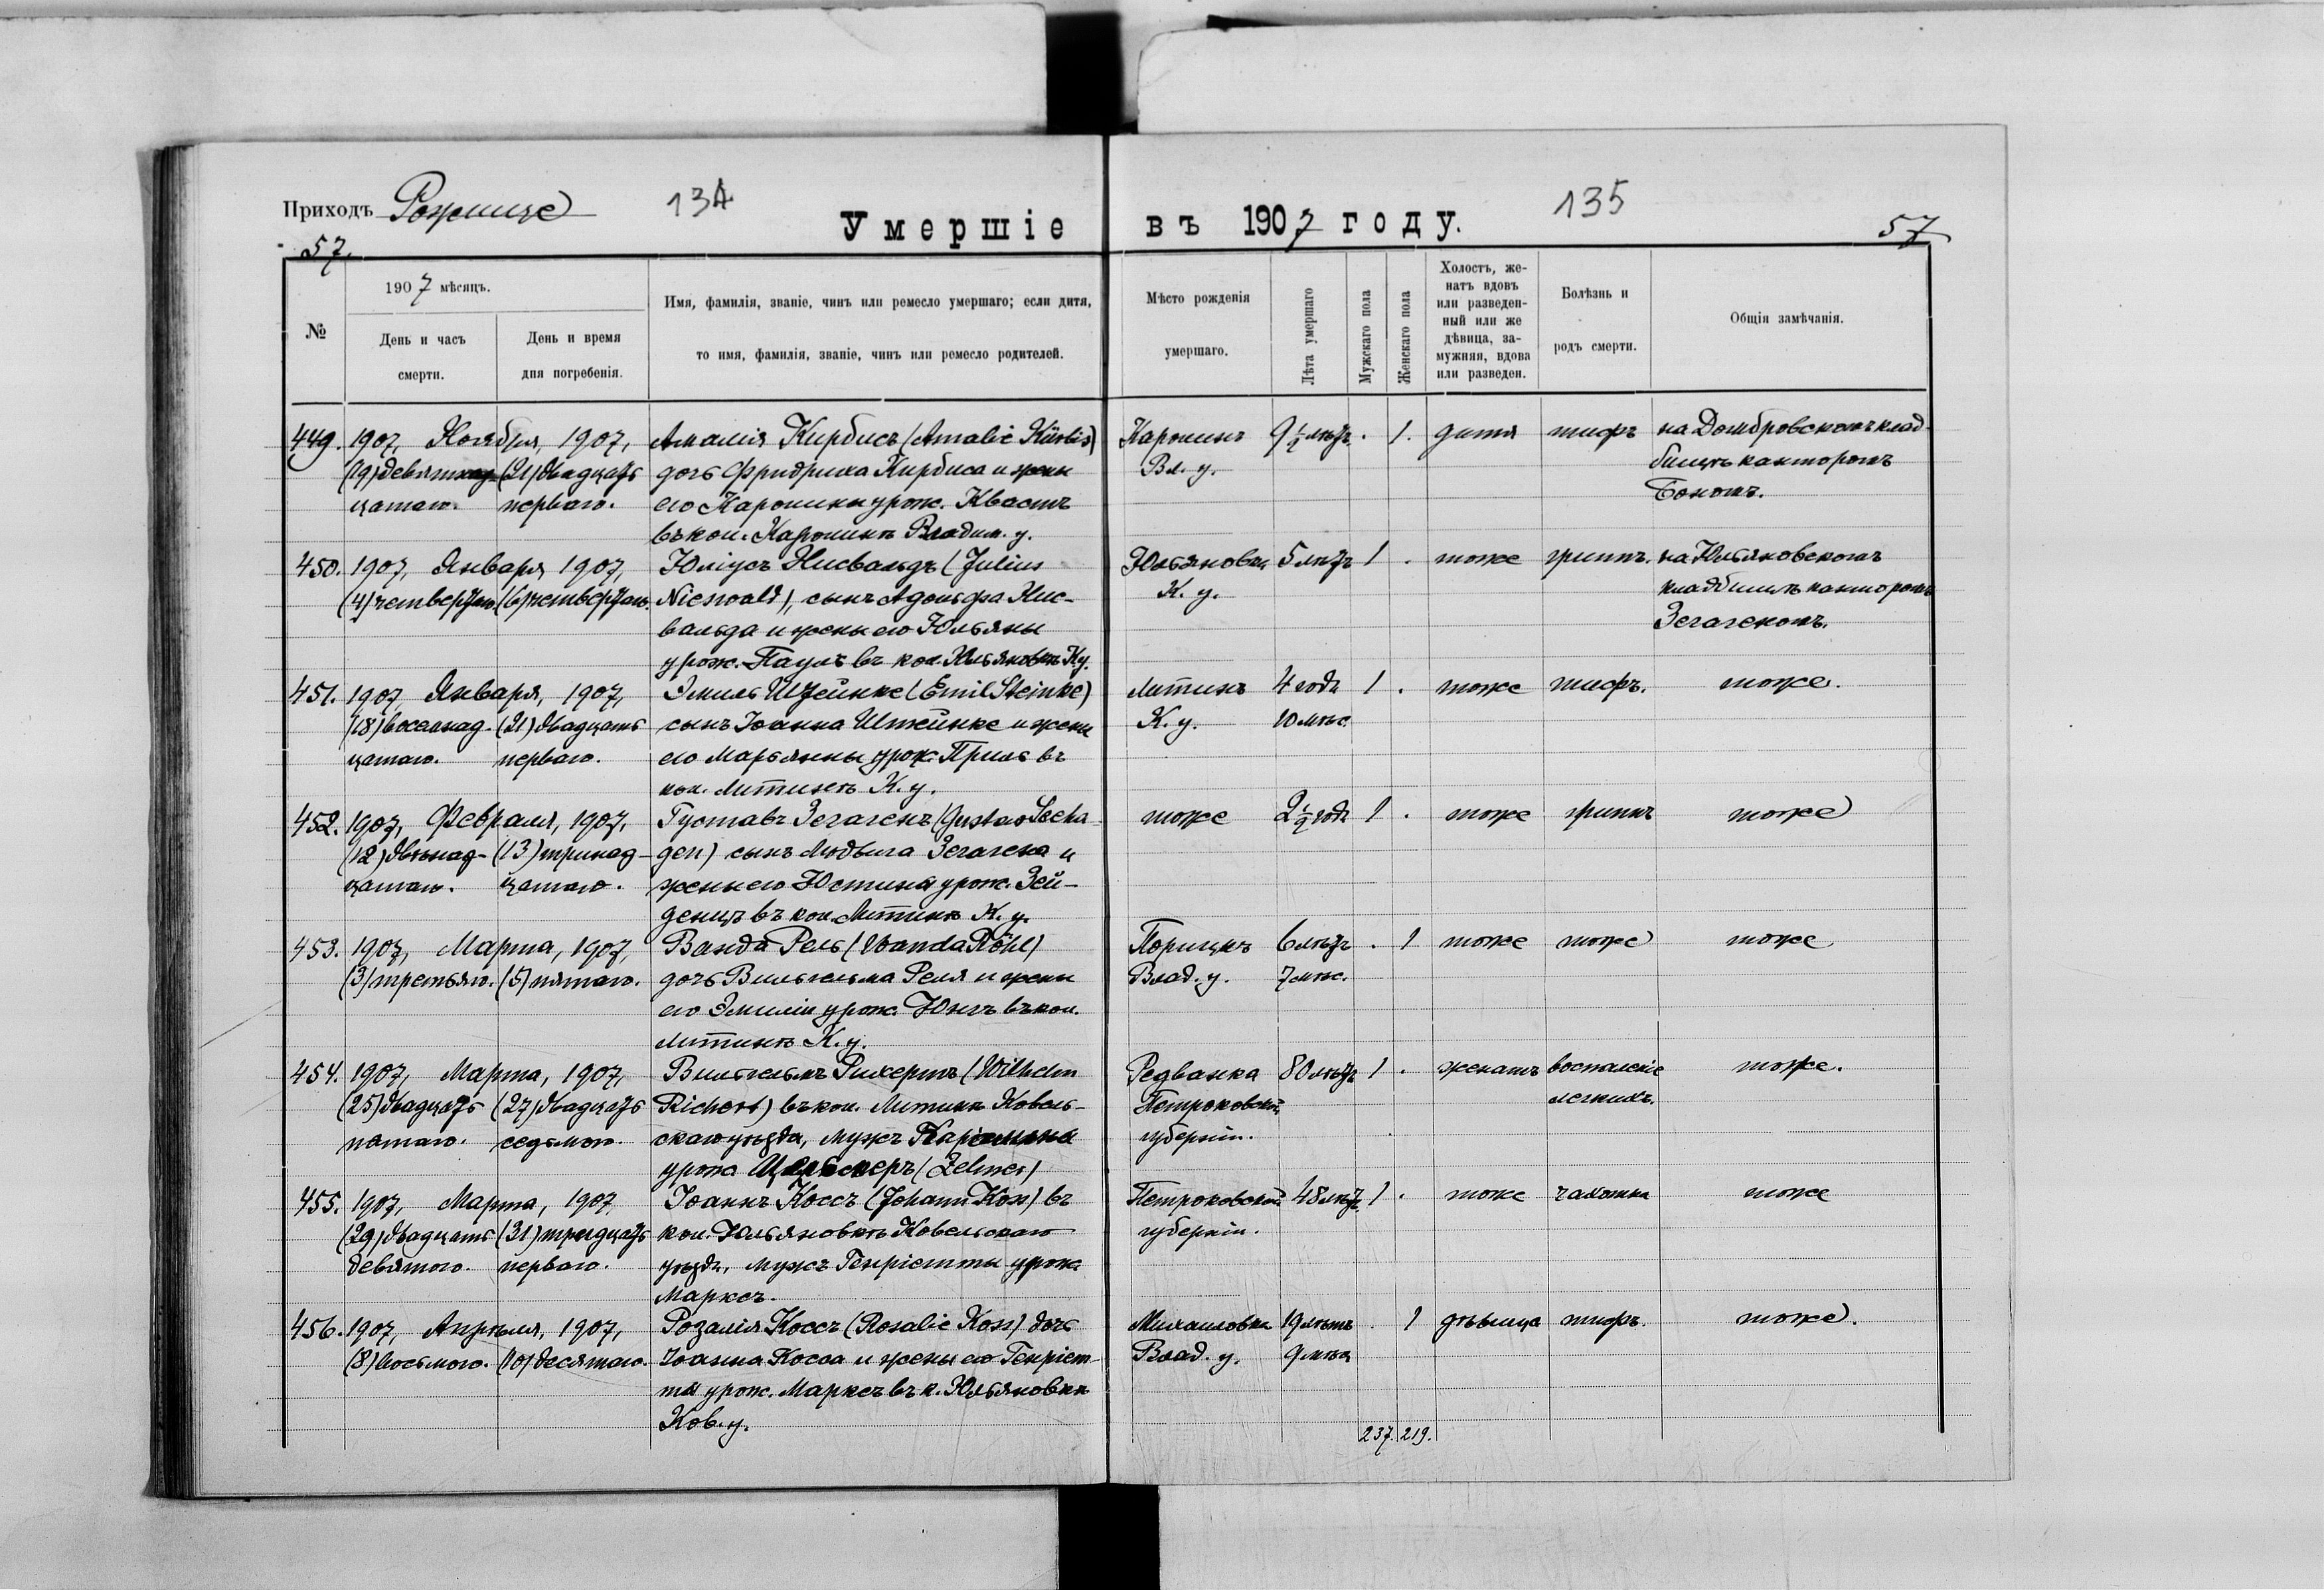 Приходъ Рожище
134
135
Умершіе въ 1907 году.
57.
57
№
1907 мѣсяцъ.
День и часъ смерти.
День и время дня погребенія.
Имя, фамилія, званіе, чинъ или ремесло умершаго; если дитя,
то имя, фамилія, званіе, чинъ или ремесло родителей.
Мѣсто рожденія умершаго.
Лѣта умершаго
Мужскаго пола
Женскаго пола
Холостъ, же-
натъ вдовъ
или разведен-
ный или же
дѣвица, за-
мужняя, вдова
или разведен.
Болѣзнь и родъ смерти.
Общія замѣчанія.
449. 1907, Ноября, 1907, Амалія Кирбисъ (Amalie Kürbis) Каролинъ 9½ лѣтъ . 1. дитя тифъ на Домбровскомъ клад-
(19) девятнад- (21) двадцать дочь Фридриха Кирбиса и жены Вл. у. бищѣ канторомъ
цатаго. перваго. его Каролины урож. Квастъ Бономъ.
въ кол. Каролинѣ Владим. у.
450. 1907, Января 1907, Юліусъ Нисвальдъ (Julius Юльяновка 5 лѣтъ 1 . тоже гриппъ. на Юльяновскомъ
(4) четвертаго. (6) четвертаго. Nieswald), сынъ Адольфа Нис- К. у. кладбищѣ канторомъ
вальда и жены его Юльяны Зегагеномъ.
урож. Пауль въ кол. Юльяновкѣ К у.
451. 1907, Января, 1907, Эмиль Штейнке (Emil Steinke) Литинъ 4 года 1 . тоже тифъ. тоже.
(18) восемнад- (21) двадцать сынъ Іоанна Штейнке и жены К. у. 10 мѣс.
цатаго. перваго. его Марьянны урож. Приль въ
кол. Литинѣ К. у.
452. 1907, Февраля, 1907, Густавъ Зегагенъ (Gustav Seeha- тоже 2½ года 1 . тоже гриппъ тоже
(12) двѣнад- (13) тринад- gen) сынъ Людвига Зегагена и
цатаго. цатаго. жены его Юстины урож. Зей-
денцъ въ кол. Литинѣ К. у.
453. 1907, Марта, 1907, Ванда Рель (Wanda Röhl) Порицкъ 6 лѣтъ . 1 тоже тоже тоже
(3) третьяго. (5) пятаго. дочь Вильгельма Реля и жены Влад. у. 7 мѣс.
его Эмиліи урож. Юнгъ въ кол.
Литинѣ К. у.
454. 1907, Марта, 1907, Вильгельмъ Рихертъ (Wilhelm Редванка 80 лѣтъ 1 . женатъ воспаленіе тоже.
(25) двадцать (27) двадцать Richert) въ кол. Литинѣ Ковель- Петроковской легкихъ.
пятаго. седьмого. скаго уѣзда, мужъ Каролины губерніи.
урожд Цельмеръ (Zelmer)
455. 1907, Марта, 1907 Іоаннъ Коссъ (Johann Koss) въ Петроковской 48 лѣтъ 1 . тоже чахотка тоже
(29) двадцать (31) тридцать кол. Юльяновкѣ Ковельскаго губерніи.
девятого. перваго. уѣзда, мужъ Генріетты урожд
Марксъ.
456. 1907, Апрѣля, 1907, Розалія Коссъ (Rosalie Koss) дочь Михаиловка 19 лѣтъ . 1 дѣвица тифъ. тоже.
(8) восьмого. (10) десятаго. Іоанна Косса и жены его Генріет- Влад. у. 9 мѣс
ты урож. Марксъ въ к. Юльяновкѣ
Ков. у.
237. 219.